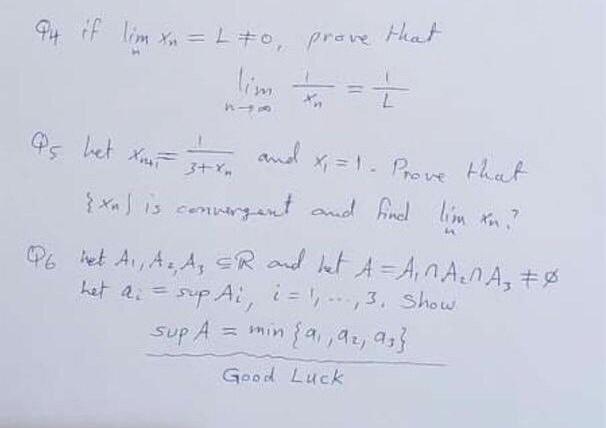 Q4 if lim_n xn = L ≠ 0, prove that
lim_{n→∞} 1/xn = 1/L
Q5 Let xn+1 = 1/(3+xn) and x1 = 1. Prove that
{xn} is convergent and find lim_n xn?
Q6 Let A1, A2, A3 ⊆ R and let A = A1 ∩ A2 ∩ A3 ≠ ∅
Let ai = sup Ai, i = 1, ..., 3. Show
sup A = min {a1, a2, a3}
Good Luck